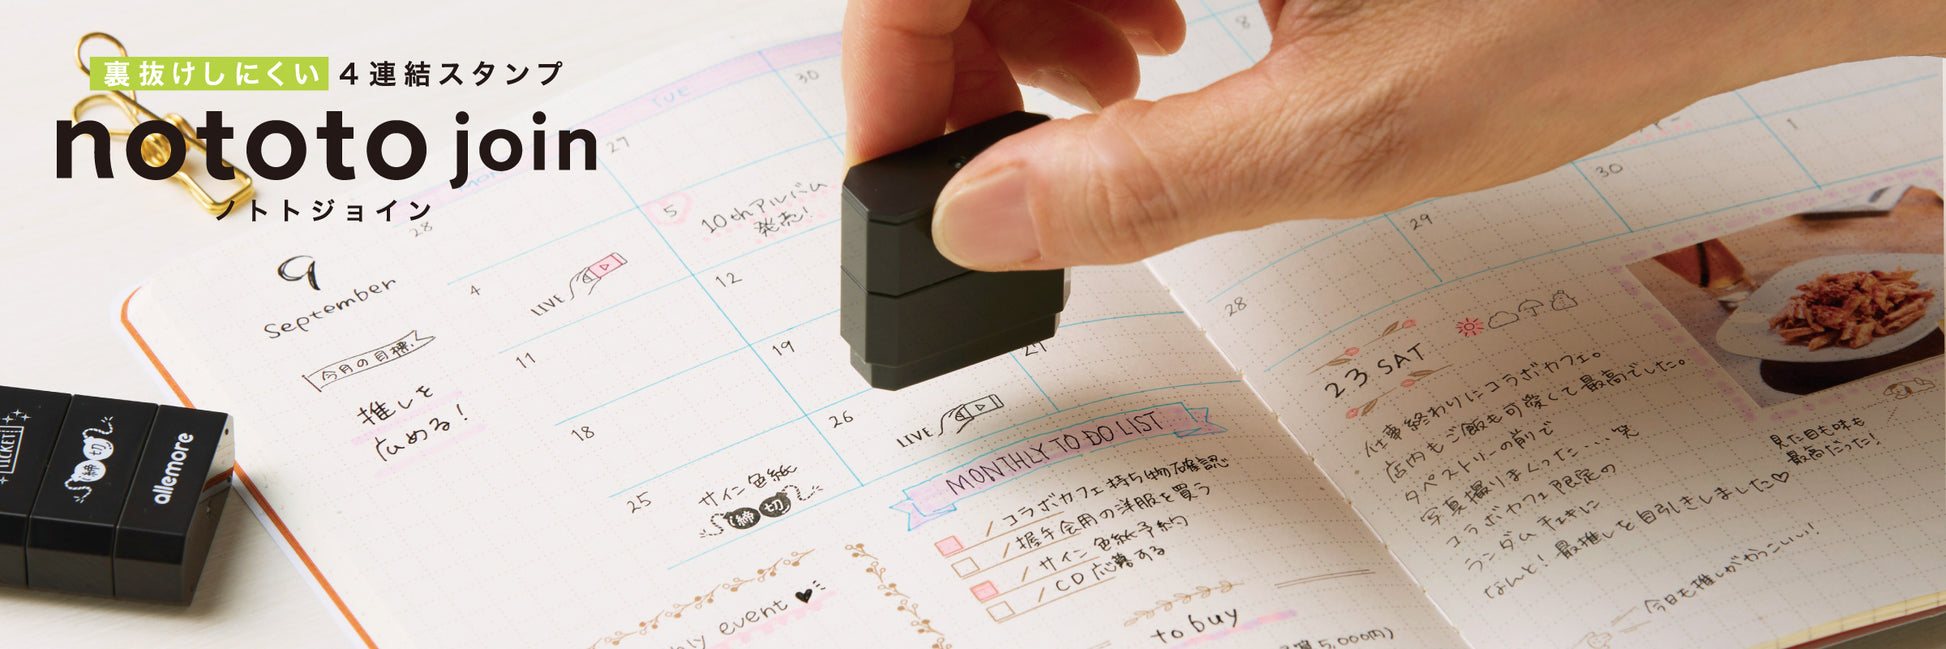 裏抜けしにくい 4連結スタンプ
nototo join
ノトトジョイン
9
September
今月の目標!
推しを
広める!
TUE
28
27
30
4
5
10thアルバム
発売!
LIVE
11
12
18
19
25
26
サイン色紙
締切
LIVE
MONTHLY TO DO LIST
コラボカフェ持ち物確認
握手会用の洋服を買う
サイン色紙予約
CD応募する
event
to buy
5,000円)
8
1
30
29
28
23 SAT
仕事終わりにコラボカフェ。
店内もご飯も可愛くて最高でした。
タペストリーの前で
写真撮りまくった....笑
コラボカフェ限定の
ランダムチェキに
なんと!最推しを自引きしました♡
見た目も味も
最高だった!
今日も推しがかっこいい!
TICKET
締切
allemore